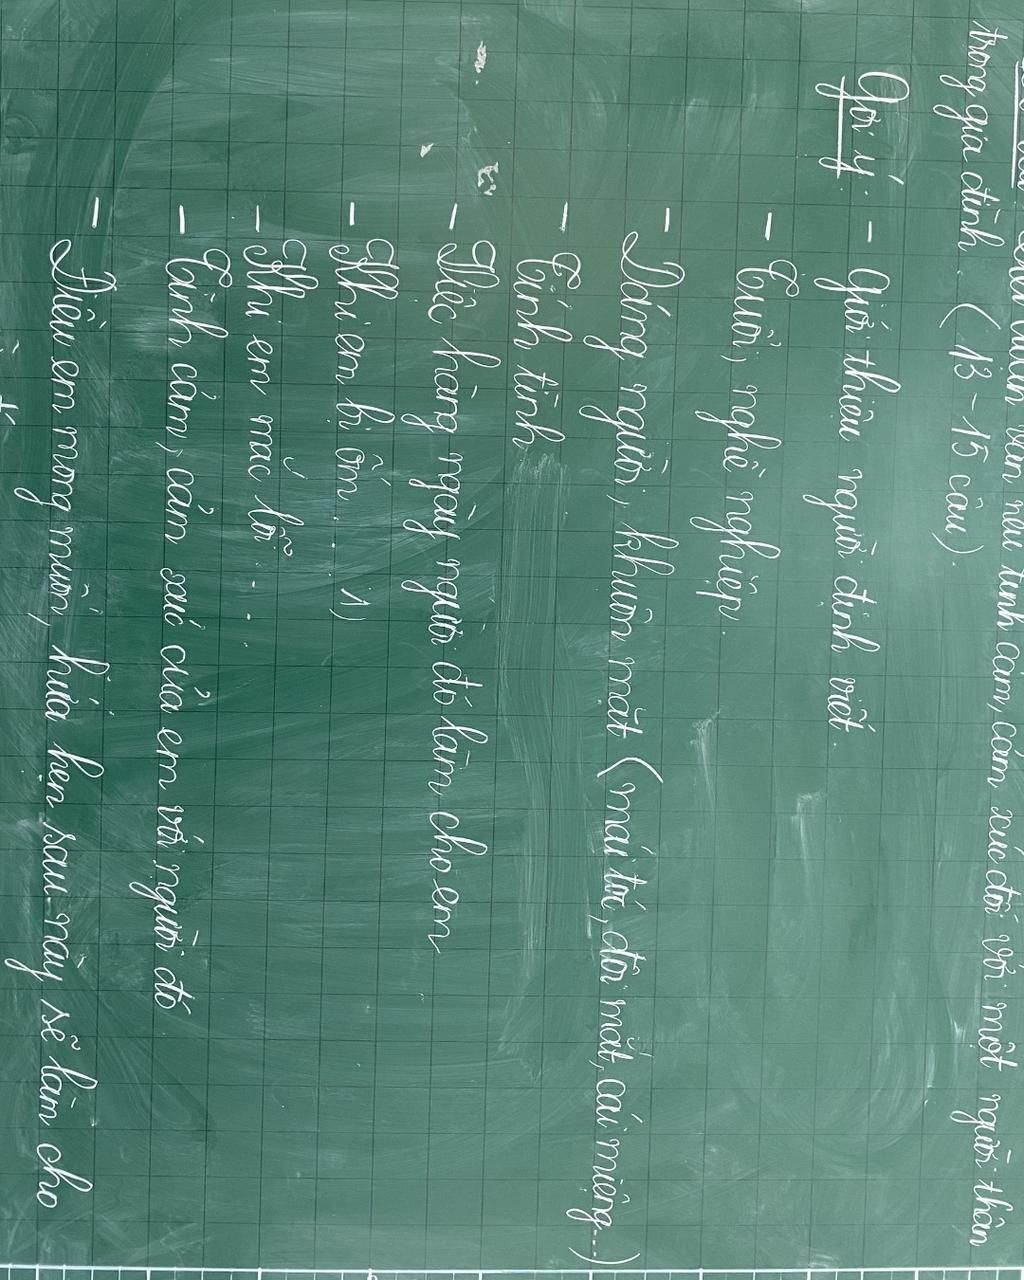 đoạn văn nêu tình cảm, cảm xúc đối với một người thân
trong gia đình. (13 - 15 câu).
Gợi ý: - Giới thiệu người định viết.
- Tuổi, nghề nghiệp.
- Dáng người, khuôn mặt (mái tóc, đôi mắt, cái miệng...)
- Tính tình
- Việc hàng ngày người đó làm cho em
- Khi em bị ốm
- Khi em mắc lỗi
- Tình cảm, cảm xúc của em với người đó
- Điều em mong muốn, hứa hẹn sau này sẽ làm cho